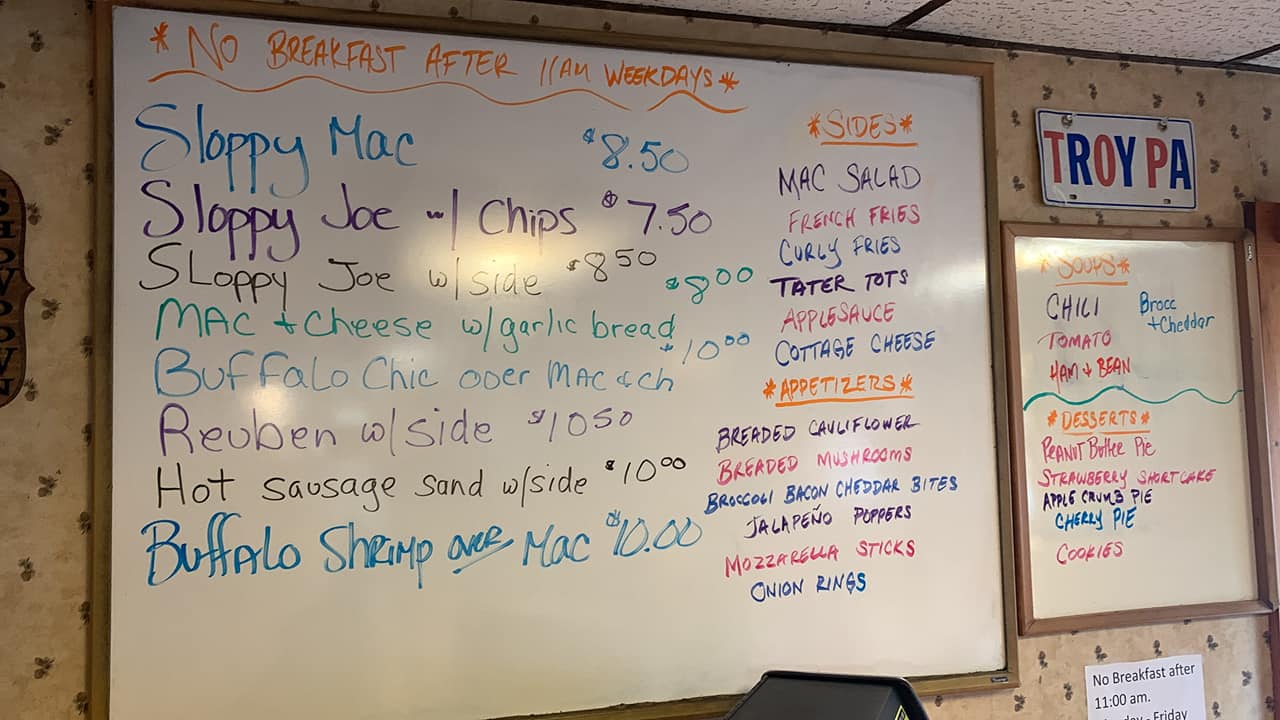 * NO BREAKFAST AFTER 11AM WEEKDAYS *
Sloppy Mac $8.50
Sloppy Joe w/ Chips $7.50
SLoppy Joe w/side $8 50
MAC + Cheese w/garlic bread $8 00
Buffalo Chic over MAC & ch $10 00
Reuben w/side $10 50
Hot sausage sand w/side $10 00
Buffalo Shrimp over Mac $10.00
*SIDES*
MAC SALAD
FRENCH FRIES
CURLY FRIES
TATER TOTS
APPLESAUCE
COTTAGE CHEESE
*APPETIZERS*
BREADED CAULIFLOWER
BREADED MUSHROOMS
BROCCOLI BACON CHEDDAR BITES
JALAPEÑO POPPERS
MOZZARELLA STICKS
ONION RINGS
TROY PA
*SOUPS*
CHILI
TOMATO
HAM + BEAN
Brocc
+Cheddar
*DESSERTS*
PEANUT Butter Pie
STRAWBERRY SHORTCAKE
APPLE CRUMB PIE
CHERRY PIE
COOKIES
No Breakfast after
11:00 am.
- Friday